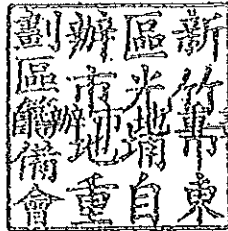 新竹市東
區光埔自
辦市地重
劃區籌備
會